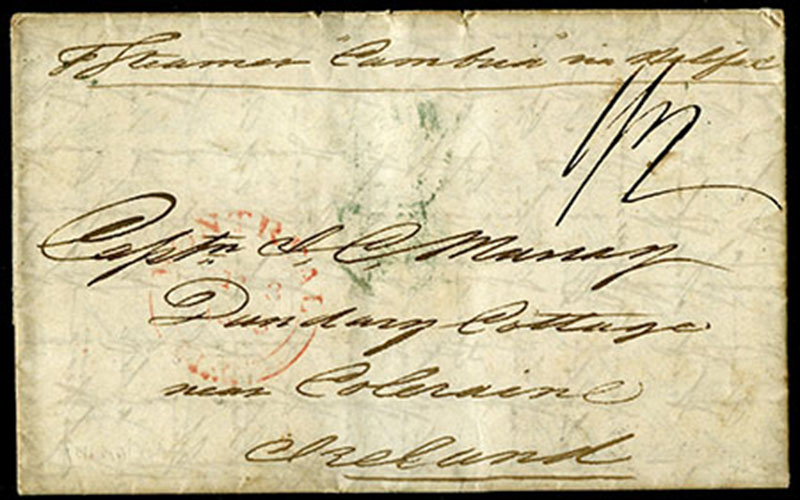 P Steamer "Cambria" via Halifax
1/2
MONTREAL
Captn. J C Murray
Dundary Cottage
near Coleraine
Ireland